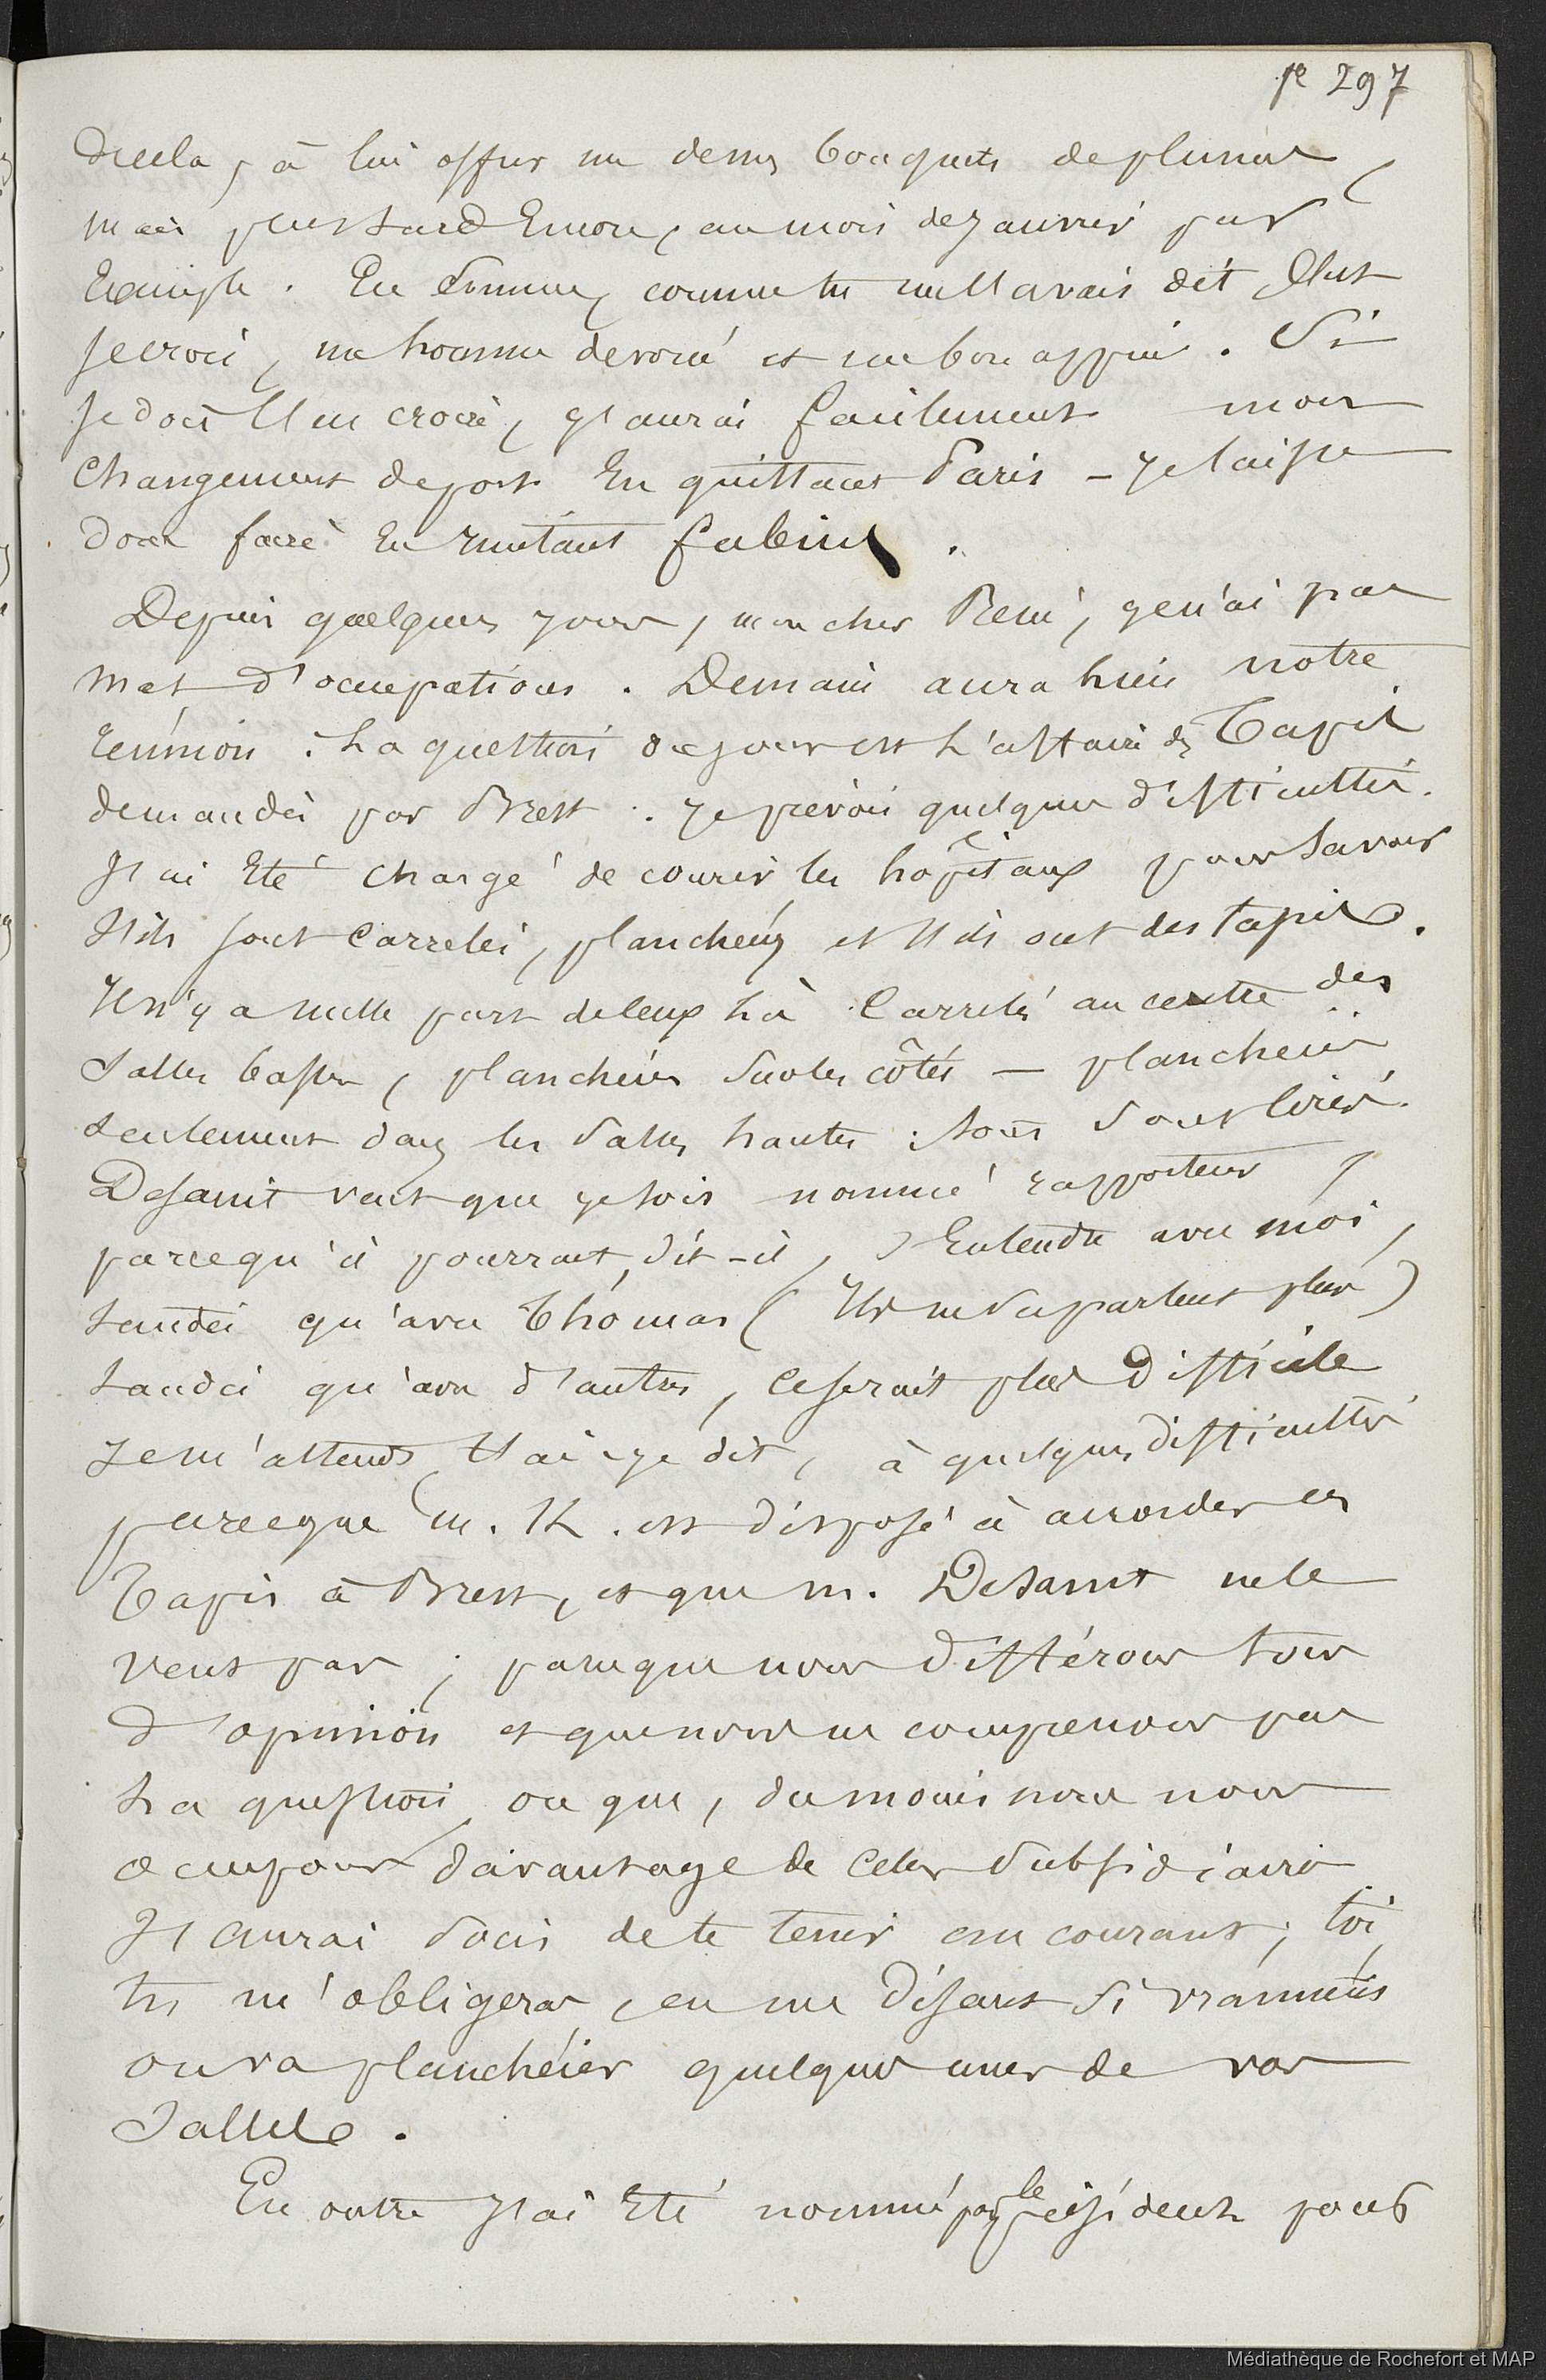 p 297
de cela, à lui offrir un de mes bouquets de plumes,
mais plus tard Encore, au mois de janvier par
Exemple. En Somme, comme tu me l'avais dit, c'est
je crois, un homme dévoué et un bon appui. Si
je dois l'en croire, j'aurai facilement mon
Changement de port En quittant Paris – je laisse
donc faire En imitant fabius.
Depuis quelques jours, mon cher René, je n'ai pas
mal d'occupations. Demain aura lieu notre
réunion : La question du jour est L'affaire des Tapis
demandés par Brest : je prévois quelques difficultés.
J'ai Eté chargé de courir les hôpitaux pour savoir
s'ils sont Carrelés, planchéiés et s'ils ont des tapis.
Il n'y a nulle part de ceux là Carrelés au centre des
Salles basses, planchéiés Sur les côtés – planchéiés
seulement dans les Salles hautes : tous Sont cirés.
Desanit veut que je sois nommé rapporteur,
parcequ'il pourrait, dit-il, s'Entendre avec moi,
tandis qu'avec Thomas (Ils ne se parlent plus)
tandis qu'avec d'autres, ce serait plus Difficile
je m'attends, t'ai-je dit, à quelques difficultés
parceque M. K. est disposé à accorder ces
Tapis à Brest, et que M. Desanit ne le
veut pas ; parceque nous différons tous
d'opinion et que nous ne comprenons pas
La question, ou que, du moins nous nous
occupons davantage de Celles Subsidiaires
J'aurai Soin de te tenir au courant ; toi,
tu m'obligeras, en me disant Si vraiment
on va planchéier quelques unes de vos
Salles.
En outre J'ai Eté nommé par le président pour
Médiathèque de Rochefort et MAP